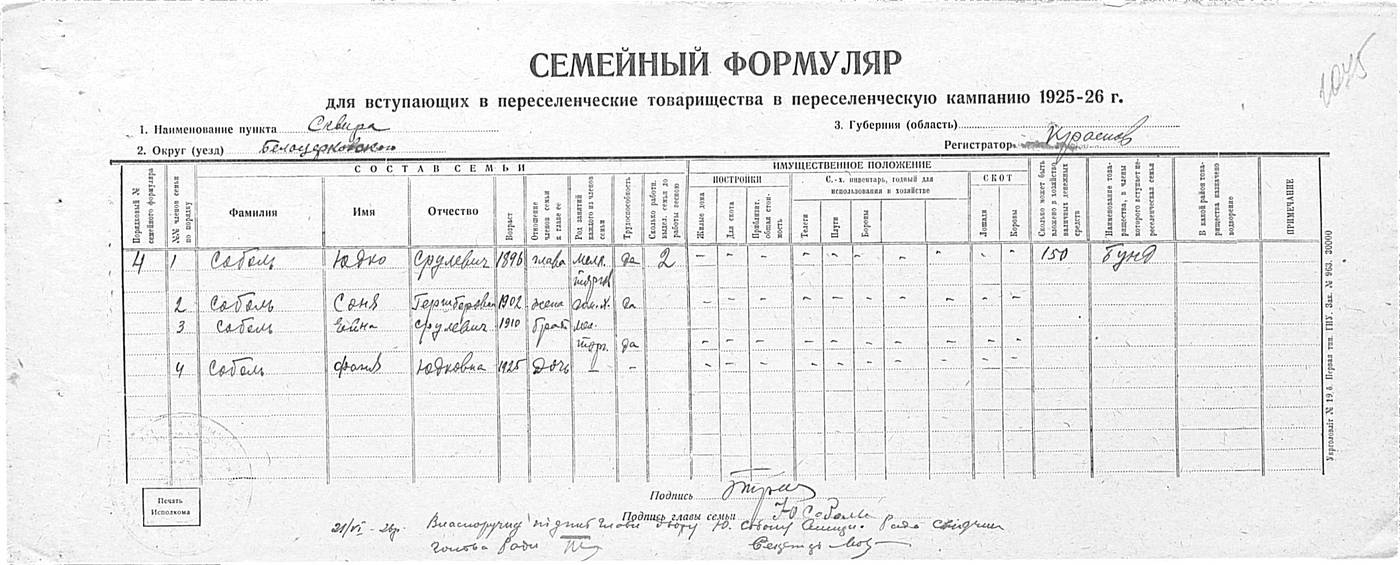 1025
СЕМЕЙНЫЙ ФОРМУЛЯР
для вступающих в переселенческие товарищества в переселенческую кампанию 1925-26 г.
1. Наименование пункта Сквира
3. Губерния (область)
2. Округ (уезд) Белоцерковского
Регистратор
СОСТАВ СЕМЬИ
ИМУЩЕСТВЕННОЕ ПОЛОЖЕНИЕ
ПОСТРОЙКИ
С.-х. инвентарь, годный для использования в хозяйстве
СКОТ
Порядковый № семейного формуляра
№№ членов семьи по порядку
Фамилия
Имя
Отчество
Возраст
Отношение членов семьи к главе ее
Род занятий каждого из членов семьи
Трудоспособность
Сколько работн. выдел. семья до работы весною
Жилые дома
Для скота
Приблизит. общая стоимость
Телеги
Плуги
Бороны
Лошади
Коровы
Сколько может быть вложено в хозяйство наличных денежных средств
Наименование товарищества, в члены которого вступает переселенческая семья
В какой район товарищества назначено водворение
ПРИМЕЧАНИЕ
4 1 Соболь Юдко Срулевич 1896 глава мелк. торгов да 2 – – – – – – – – – – 150 Бунд
2 Соболь Соня 1902 жена дом. х. да – – – – – – – – – –
3 Соболь Срулевич 1910 брат мел. торг. да – – – – – – – – – –
4 Соболь Фаня Юдковна 1925 дочь – – – – – – – – – – – –
Печать Исполкома
Подпись
Подпись главы семьи Ю Соболь
21/VI - 26р.
голова Ради
Укрголовліт № 19.б. Первая тип. ГИУ. Зак. № 963. 20000